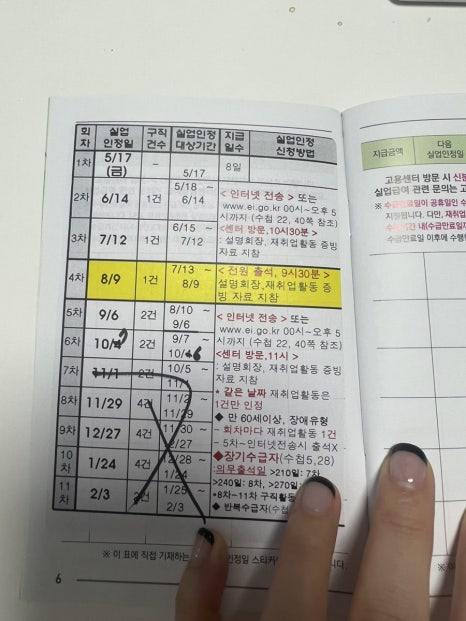 회차 실업인정일 구직건수 실업인정대상기간 지급일수 실업인정 신청방법
1차 5/17 (금) - 5/17 8일
2차 6/14 1건 5/18 ~ 6/14
< 인터넷 전송 > 또는
www.ei.go.kr 00시~오후 5
시까지 (수첩 22, 40쪽 참조)
3차 7/12 1건 6/15 ~ 7/12
<센터 방문,10시30분>
: 설명회장, 재취업활동 증빙
자료 지참
4차 8/9 1건 7/13 ~ 8/9
< 전원 출석, 9시30분 >
설명회장,재취업활동 증
빙 자료 지참
5차 9/6 2건 8/10 ~ 9/6
< 인터넷 전송 > 또는
www.ei.go.kr 00시~오후 5
시까지 (수첩 22, 40쪽 참조)
6차 10/ 2건 9/7 ~ 10/6
<센터 방문,11시 >
: 설명회장, 재취업활동 증빙
자료 지참
7차 11/1 2건 10/5 ~ 11/1
* 같은 날짜 재취업활동은
1건만 인정
8차 11/29 4건 11/2 ~ 11/29
◆ 만 60세이상, 장애유형
- 회차마다 재취업활동 1건
9차 12/27 4건 11/30 ~ 12/27
- 5차~인터넷전송시 출석X
◆장기수급자(수첩5,28)
10차 1/24 4건 12/28 ~ 1/24
:의무출석일 >210일: 7차
>240일: 8차, >270일:
11차 2/3 2건 1/25 ~ 2/3
*8차~11차 구직활동
◆ 반복수급자(수첩
※ 이 표에 직접 기재하는
인정일 스티커
니다.
6
지급금액 다음 실업인정일
고용센터 방문 시 신분
실업급여 관련 문의는 고
※ 수급만료일이 공휴일인 수
지정됩니다. 다만, 재취업
수급기간 내(수급만료일까
수급만료일 이후에 수행